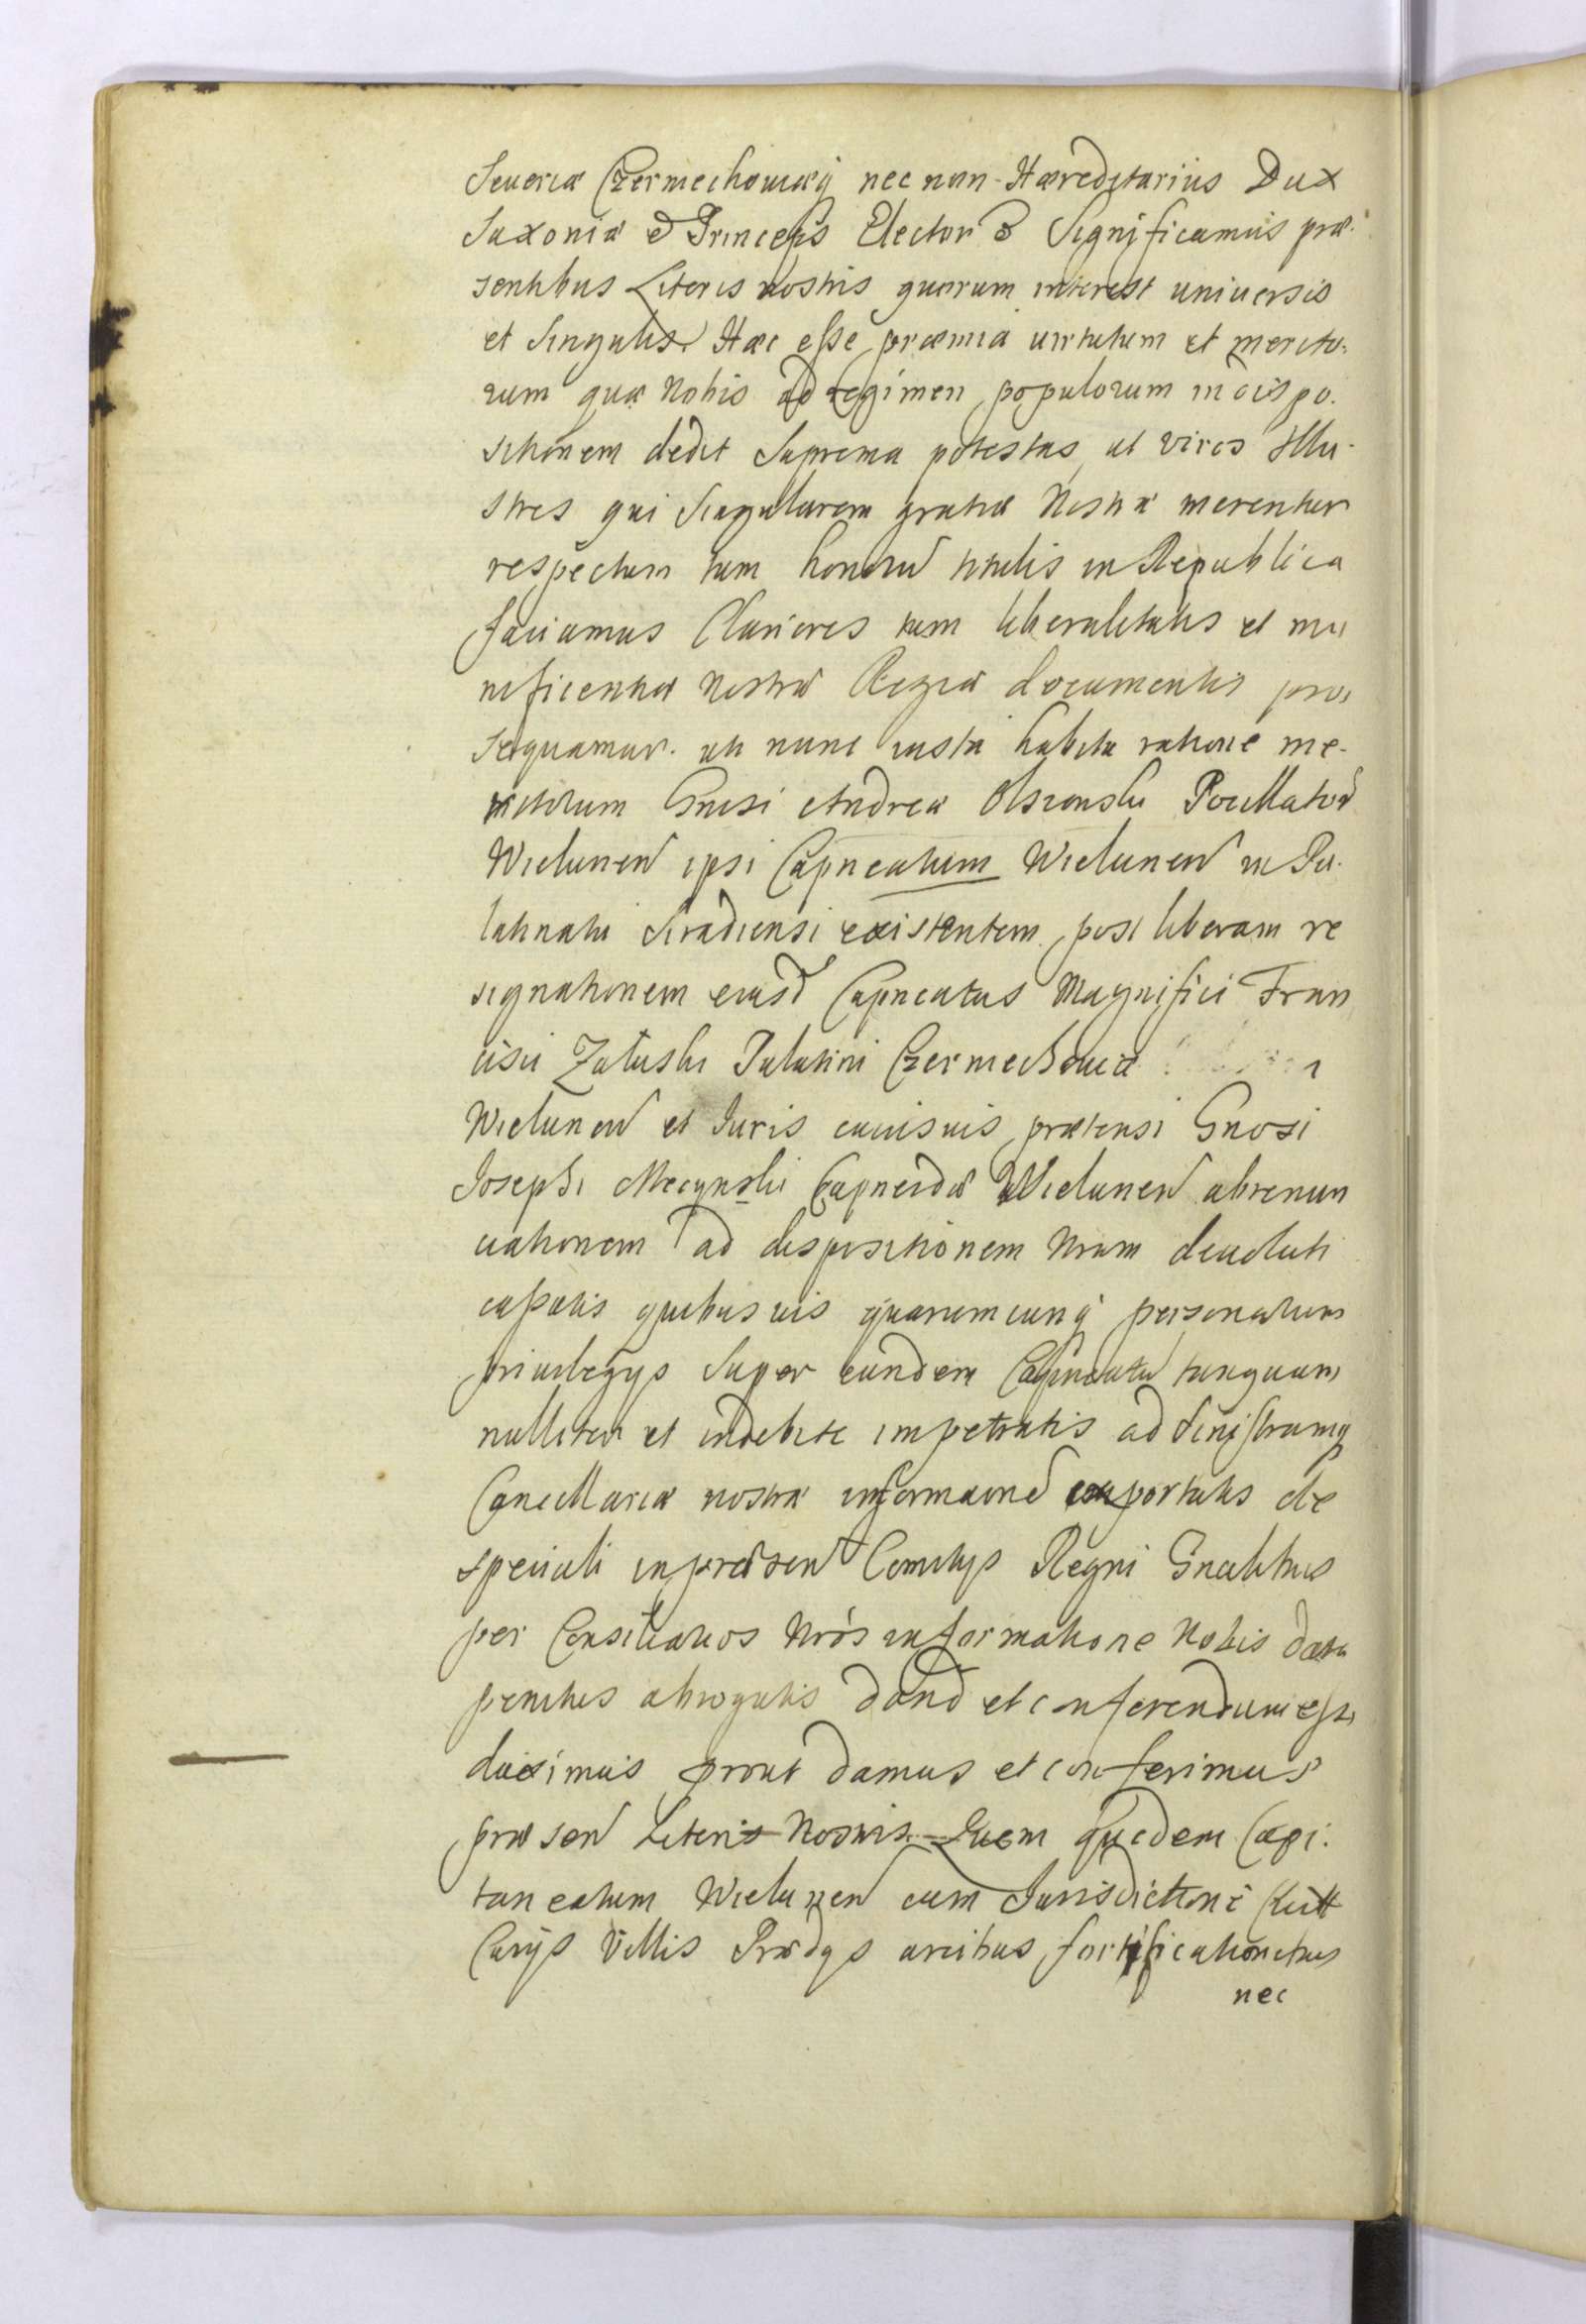 Seueriæ Czerniechouiæq̃ nec non Hæreditarius Dux
Saxoniæ & Princeps Elector & Significamus præ-
sentibus Literis nostris quorum interest uniuersis
et Singulis. Hæc esse præmia uirtutum et merito-
rum quæ Nobis ad regimen populorum in dispo-
sitionem dedit Suprema potestas, ut viros Illu-
stres qui Singularem gratiæ Nostræ merentur
respectum tum honorũ titulis in Republica
faciamus Clariores tum liberalitatis et mu
nificentiæ Nostræ Regiæ documentis pro-
sequamur. uti nunc iusta habita ratione me-
ritorum Gnosi Andreæ Olszonski Pocillator
Wielunen ipsi Capneatum Wielunen in Pa-
latinatu Siradiensi existentem post liberam re
signationem eiusd Capneatus Magnifici Fran
cisci Załuski Palatini Czerniechouiæ
Wielunen et Iuris cuiusuis prætensi Gnosi
Josephi Mecynski Capneidæ Wielunen abrenun
ciationem ad dispositionem Nram deuoluti
cassatis quibusuis quarumcunq̃ personarum
priuilegys Super eundem Capneatũ tanquam
nulliter et indebite impetratis ad Sinistramq
Cancellariæ nostræ informaone exportatis de
speciali in præsen Comitys Regni Gnalibus
per Consiliarios Nrós informatione Nobis data
penitus abrogatis dand et conferendum esse
duximus prout damus et conferimus
præsen Literis Nostris. Quem quidem Capi-
taneatum Wielunen cum Jurisdictione Ciuitt
Curÿs Villis Prædys arcibus fortificationibus
nec